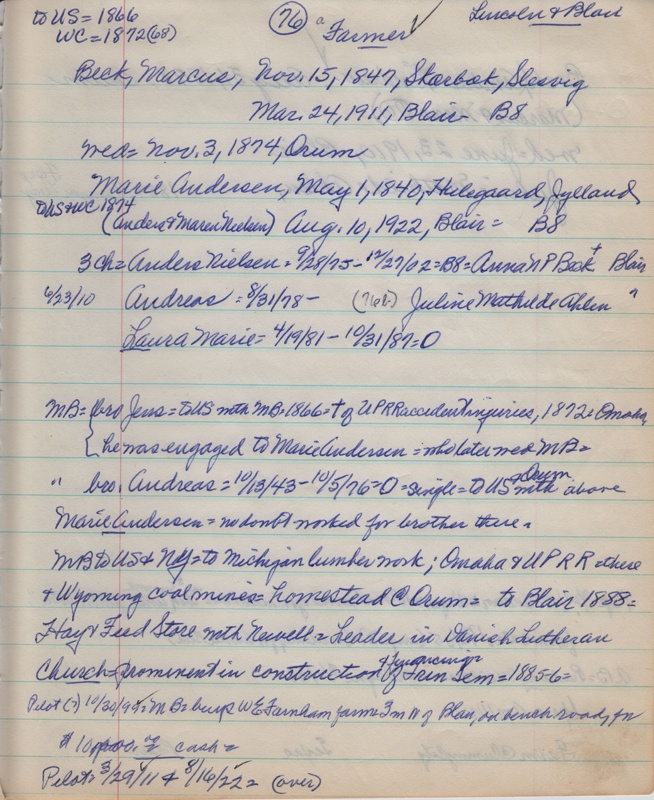 to US = 1866 (76) a Farmer ✓ Lincoln & Blair
WC = 1872 (68)
Beck, Marcus, Nov. 15, 1847, Skarbak, Slesvig
Mar. 24, 1911, Blair - B8
wed = Nov. 3, 1874, Orum
Marie Andersen, May 1, 1840, Jylland,
to US & WC 1874
(Anders & Maren Nielsen) Aug. 10, 1922, Blair = B8
3 ch = Anders Nielsen = 9/28/75 - 12/27/02 = B8 = Anna N P Beck + Blair
6/23/10 Andreas = 8/31/78 - (768-) Juline Mathilde Ahlen "
Laura Marie = 4/19/81 - 10/31/87 = O
MB = { bro Jens = to US with MB = 1866 = + of UPRR accident injuries, 1872 = Omaha,
{ he was engaged to Marie Andersen = who later wed MB =
" bro. Andreas = 10/13/43 - 10/5/76 = O = single = to US & Orum with above
Marie Andersen = no doubt worked for brother there =
MB to US & NY = to Michigan lumber work; Omaha & U P R R = there
& Wyoming coal mines = homestead @ Orum = to Blair 1888 =
Hay & Feed Store with Newell = Leader in Danish Lutheran
Church = prominent in construction & financing of Trin Sem = 1885-6 =
Pilot (2) 10/30/94 = MB = buys W E Farnham farm = 3 m W of Blair, on bench road, for
cash =
Pilot = 3/29/11 & 8/16/22 = (over)